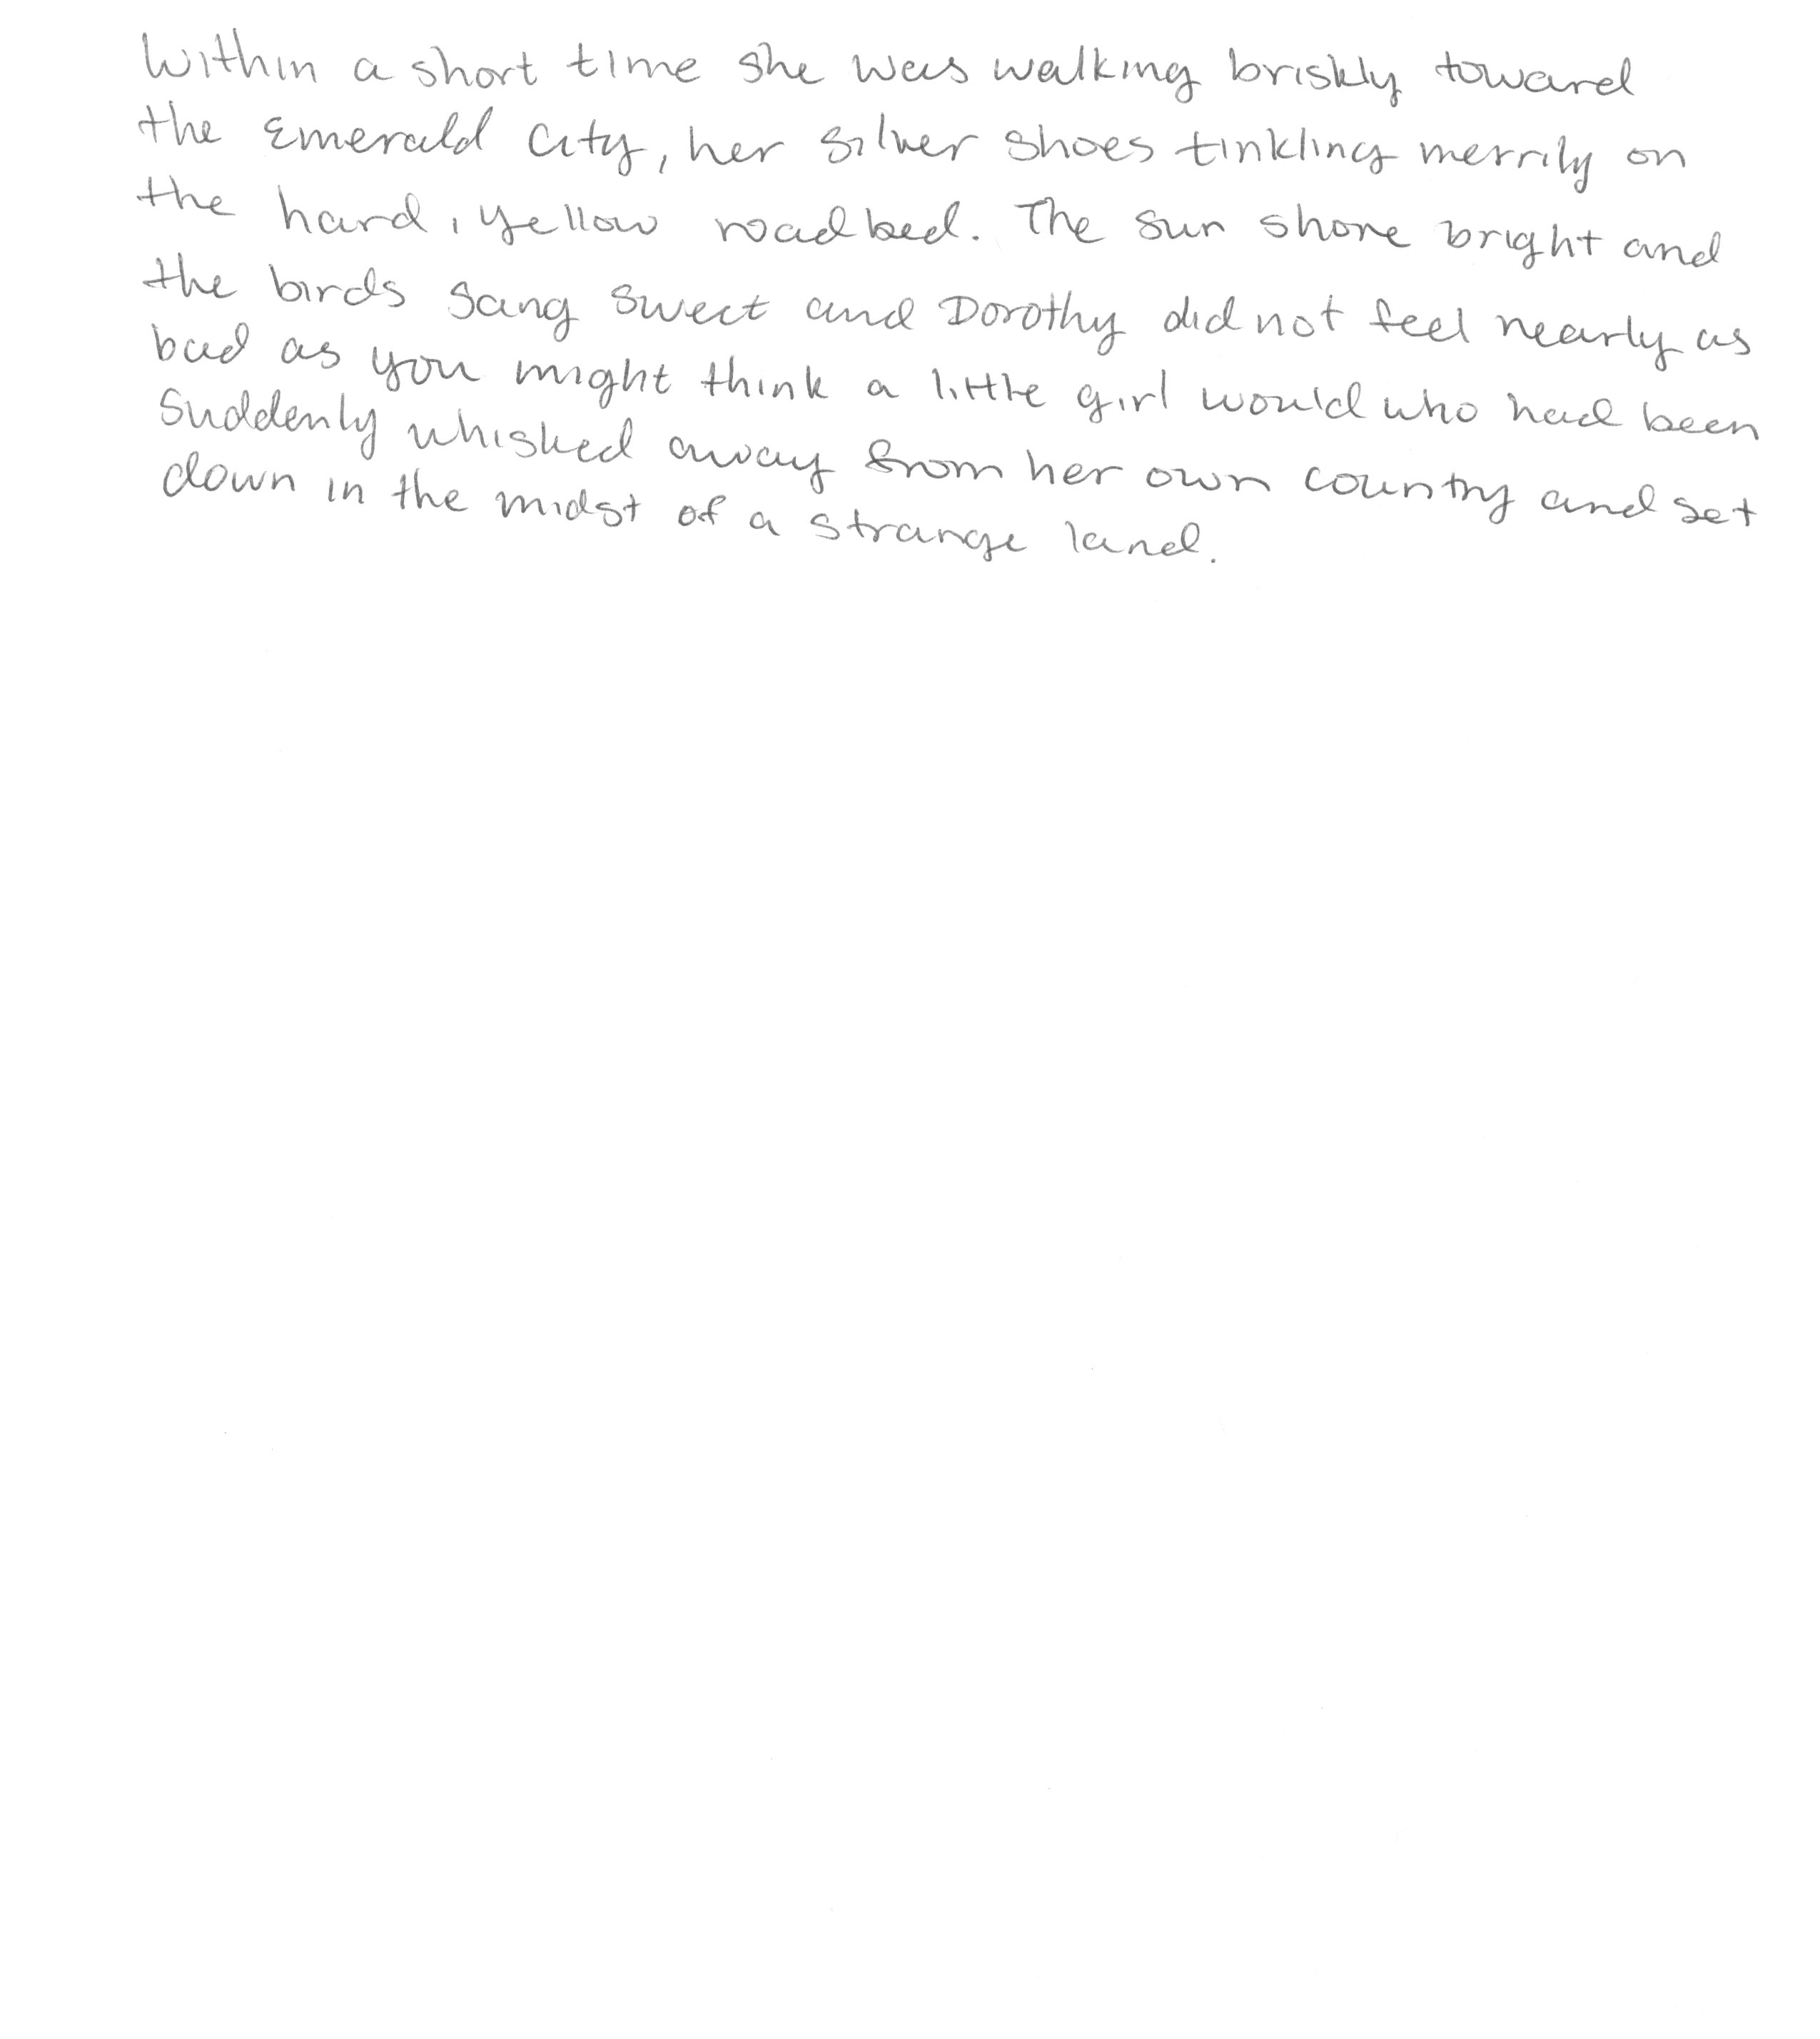 Within a short time she was walking briskly toward
the Emerald City, her silver shoes tinkling merrily on
the hard, yellow roadbed. The sun shone bright and
the birds sang sweet and Dorothy did not feel nearly as
bad as you might think a little girl would who had been
suddenly whisked away from her own country and set
down in the midst of a strange land.